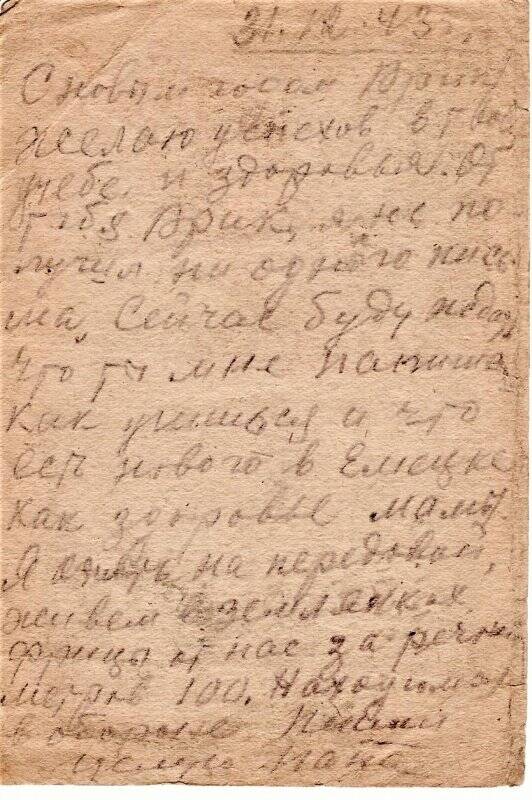 31.12.43 г.
С новым годом Эрик!
желаю успехов в твоей
учебе и здоровья. От
тебя Эрик, я не по-
лучил ни одного пись-
ма, сейчас буду
что ты мне напишешь
как учишься и что
есть нового в Емецке
как здоровье мамы.
Я опять на передовой,
живем в землянках,
фрицы от нас за речкой
метров 100. Находимся
в обороне Пиши
целую папа